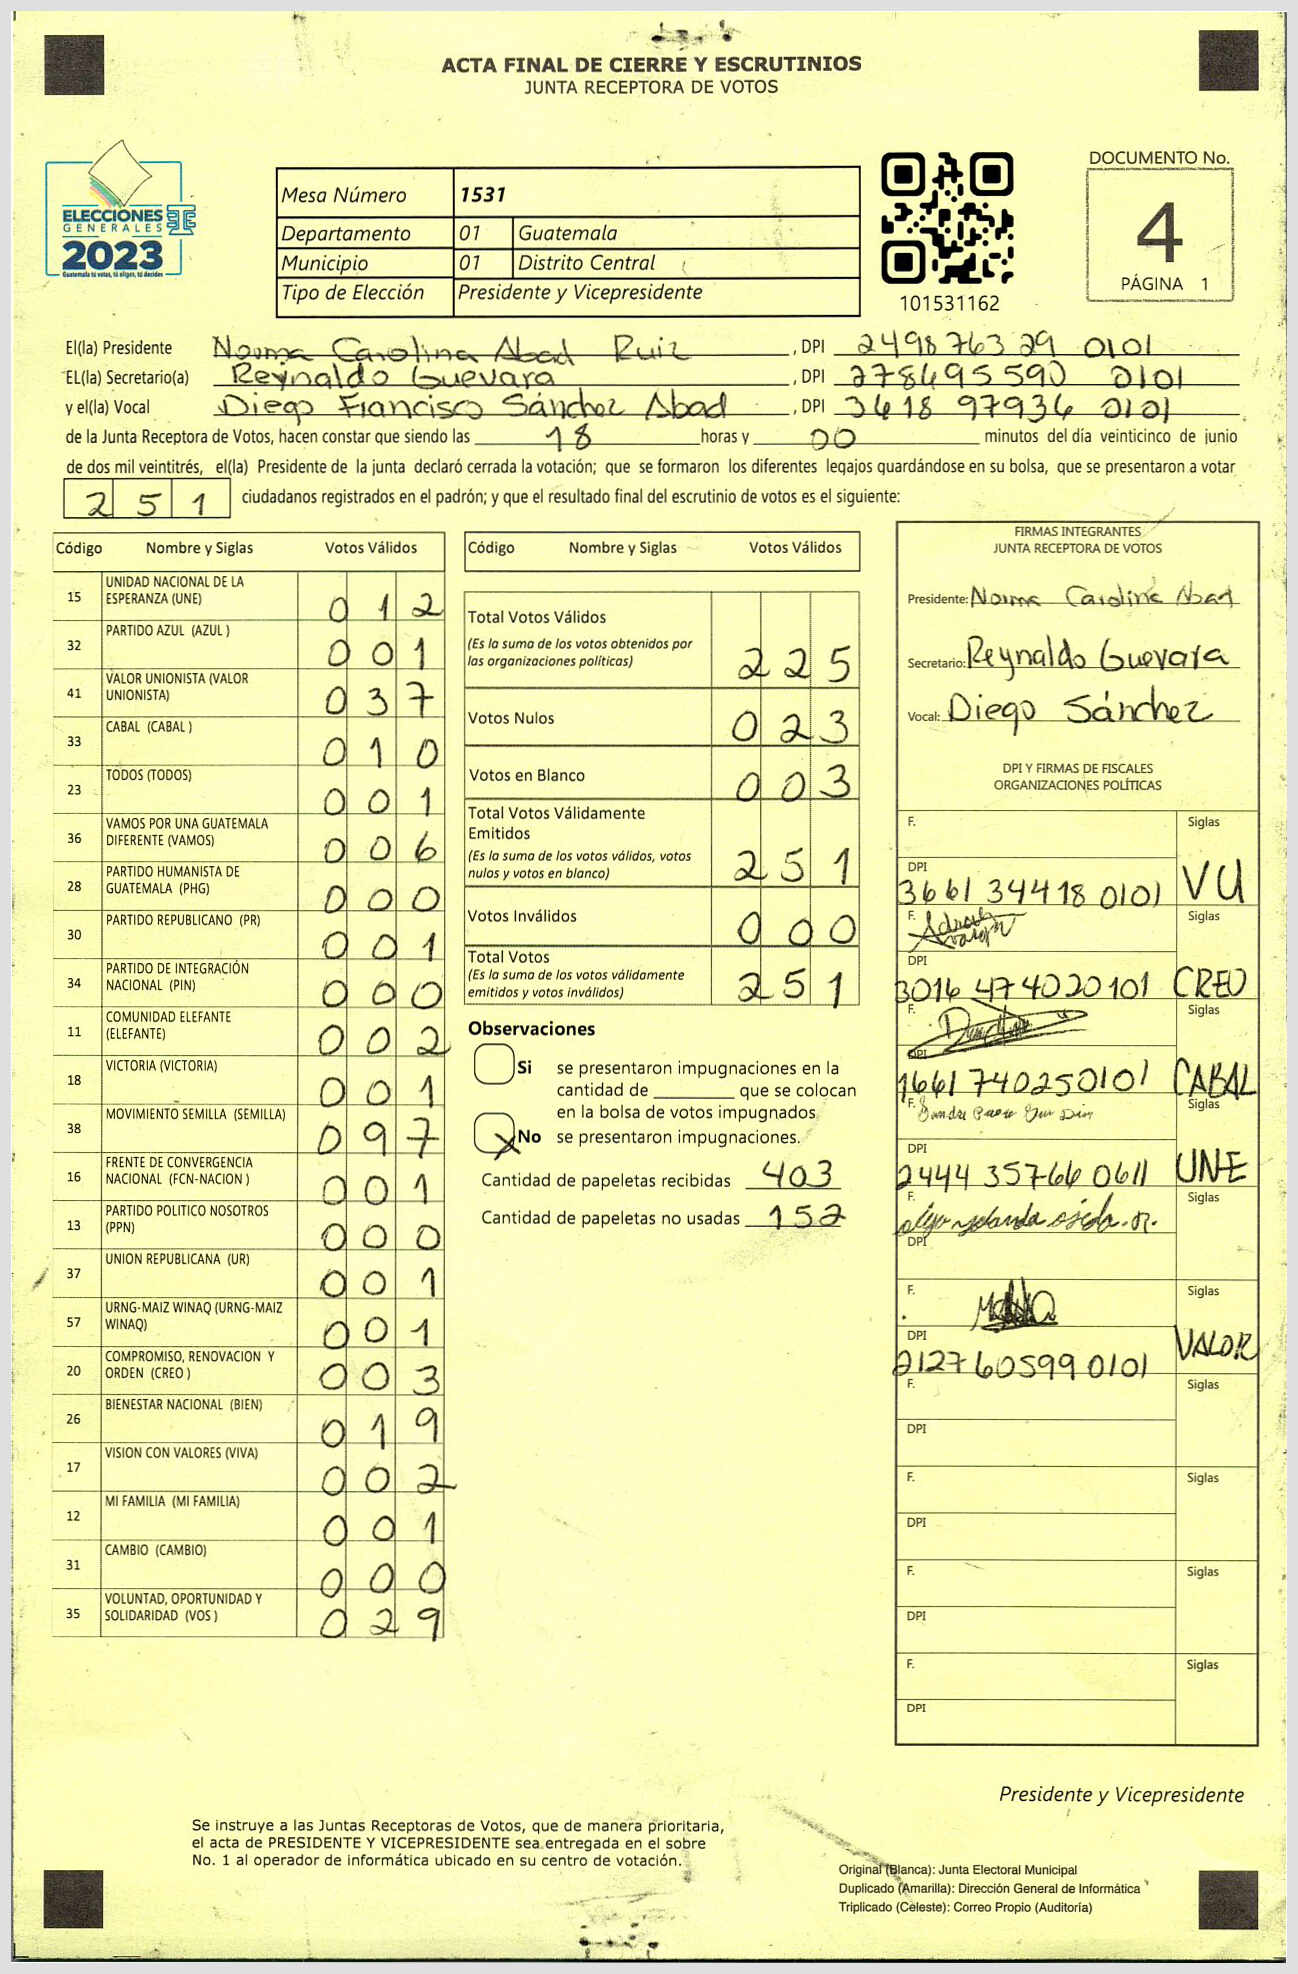 ACTA FINAL DE CIERRE Y ESCRUTINIOS
JUNTA RECEPTORA DE VOTOS
ELECCIONES
GENERALES
2023
Guatemala tú votas, tú eliges, tú decides
Mesa Número 1531
Departamento 01 Guatemala
Municipio 01 Distrito Central
Tipo de Elección Presidente y Vicepresidente
101531162
DOCUMENTO No.
4
PÁGINA 1
El(la) Presidente Norma Carolina Abad Ruiz, DPI 2498 76329 0101
EL(la) Secretario(a) Reynaldo Guevara, DPI 278495590 0101
y el(la) Vocal Diego Francisco Sánchez Abad, DPI 3618 97936 0101
de la Junta Receptora de Votos, hacen constar que siendo las 18 horas y 00 minutos del día veinticinco de junio
de dos mil veintitrés, el(la) Presidente de la junta declaró cerrada la votación; que se formaron los diferentes legajos quardándose en su bolsa, que se presentaron a votar
251 ciudadanos registrados en el padrón; y que el resultado final del escrutinio de votos es el siguiente:
Código Nombre y Siglas Votos Válidos
15 UNIDAD NACIONAL DE LA ESPERANZA (UNE) 012
32 PARTIDO AZUL (AZUL ) 001
41 VALOR UNIONISTA (VALOR UNIONISTA) 037
33 CABAL (CABAL ) 010
23 TODOS (TODOS) 001
36 VAMOS POR UNA GUATEMALA DIFERENTE (VAMOS) 006
28 PARTIDO HUMANISTA DE GUATEMALA (PHG) 000
30 PARTIDO REPUBLICANO (PR) 001
34 PARTIDO DE INTEGRACIÓN NACIONAL (PIN) 000
11 COMUNIDAD ELEFANTE (ELEFANTE) 002
18 VICTORIA (VICTORIA) 001
38 MOVIMIENTO SEMILLA (SEMILLA) 097
16 FRENTE DE CONVERGENCIA NACIONAL (FCN-NACION ) 001
13 PARTIDO POLITICO NOSOTROS (PPN) 000
37 UNION REPUBLICANA (UR) 001
57 URNG-MAIZ WINAQ (URNG-MAIZ WINAQ) 001
20 COMPROMISO, RENOVACION Y ORDEN (CREO ) 003
26 BIENESTAR NACIONAL (BIEN) 019
17 VISION CON VALORES (VIVA) 002
12 MI FAMILIA (MI FAMILIA) 001
31 CAMBIO (CAMBIO) 000
35 VOLUNTAD, OPORTUNIDAD Y SOLIDARIDAD (VOS ) 029
Código Nombre y Siglas Votos Válidos
Total Votos Válidos
(Es la suma de los votos obtenidos por las organizaciones políticas) 225
Votos Nulos 023
Votos en Blanco 003
Total Votos Válidamente Emitidos
(Es la suma de los votos válidos, votos nulos y votos en blanco) 251
Votos Inválidos 000
Total Votos
(Es la suma de los votos válidamente emitidos y votos inválidos) 251
Observaciones
Si se presentaron impugnaciones en la
cantidad de ________ que se colocan
en la bolsa de votos impugnados
X No se presentaron impugnaciones.
Cantidad de papeletas recibidas 403
Cantidad de papeletas no usadas 152
FIRMAS INTEGRANTES
JUNTA RECEPTORA DE VOTOS
Presidente: Norma Carolina Abad
Secretario: Reynaldo Guevara
Vocal: Diego Sánchez
DPI Y FIRMAS DE FISCALES
ORGANIZACIONES POLÍTICAS
F. Siglas
DPI
3661 34418 0101 VU
F. Siglas
DPI
3016 474020101 CREO
F. Siglas
DPI
1661740250101 CABAL
F. Siglas
DPI
2444 35766 0611 UNE
F. Siglas
DPI
F. Siglas
DPI
2127605990101 VALOR
F. Siglas
DPI
F. Siglas
DPI
F. Siglas
DPI
F. Siglas
DPI
Presidente y Vicepresidente
Se instruye a las Juntas Receptoras de Votos, que de manera prioritaria,
el acta de PRESIDENTE Y VICEPRESIDENTE sea entregada en el sobre
No. 1 al operador de informática ubicado en su centro de votación.
Original (Blanca): Junta Electoral Municipal
Duplicado (Amarilla): Dirección General de Informática
Triplicado (Celeste): Correo Propio (Auditoría)